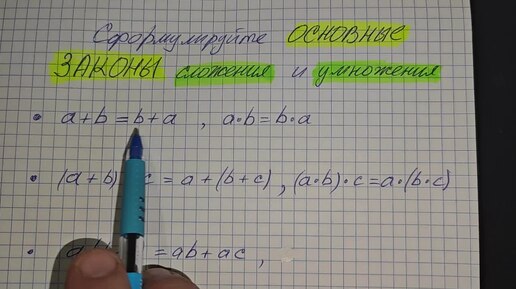 Сформулируйте ОСНОВНЫЕ
ЗАКОНЫ сложения и умножения
• a+b=b+a , a·b=b·a
• (a+b) c = a+(b+c) , (a·b)·c=a·(b·c)
• = ab+ac ,